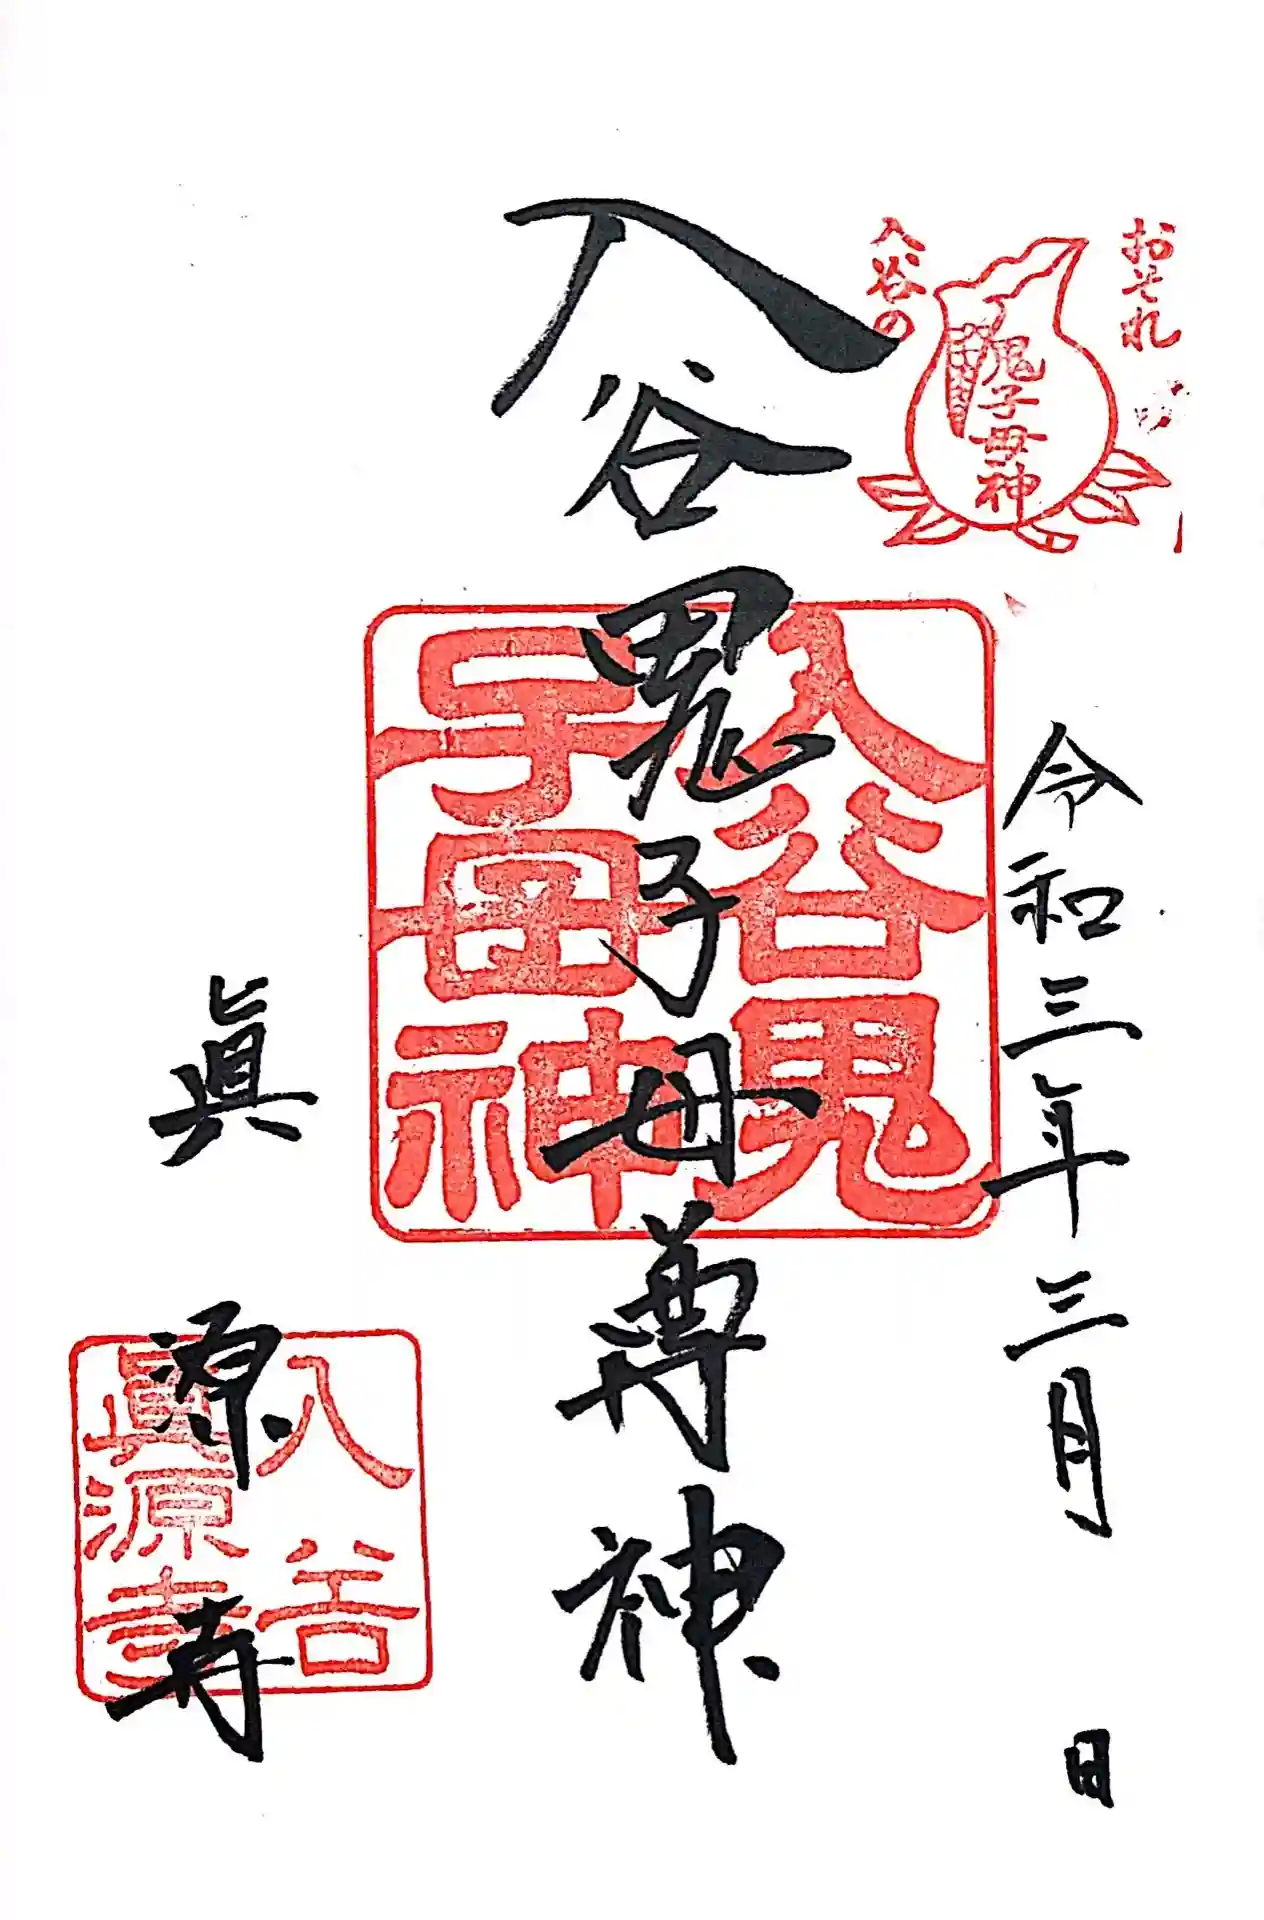 おそれ
入谷の
鬼子母神
令和三年三月 日
入谷鬼子母尊神
入谷鬼
子母神
眞源寺
入谷
眞源寺